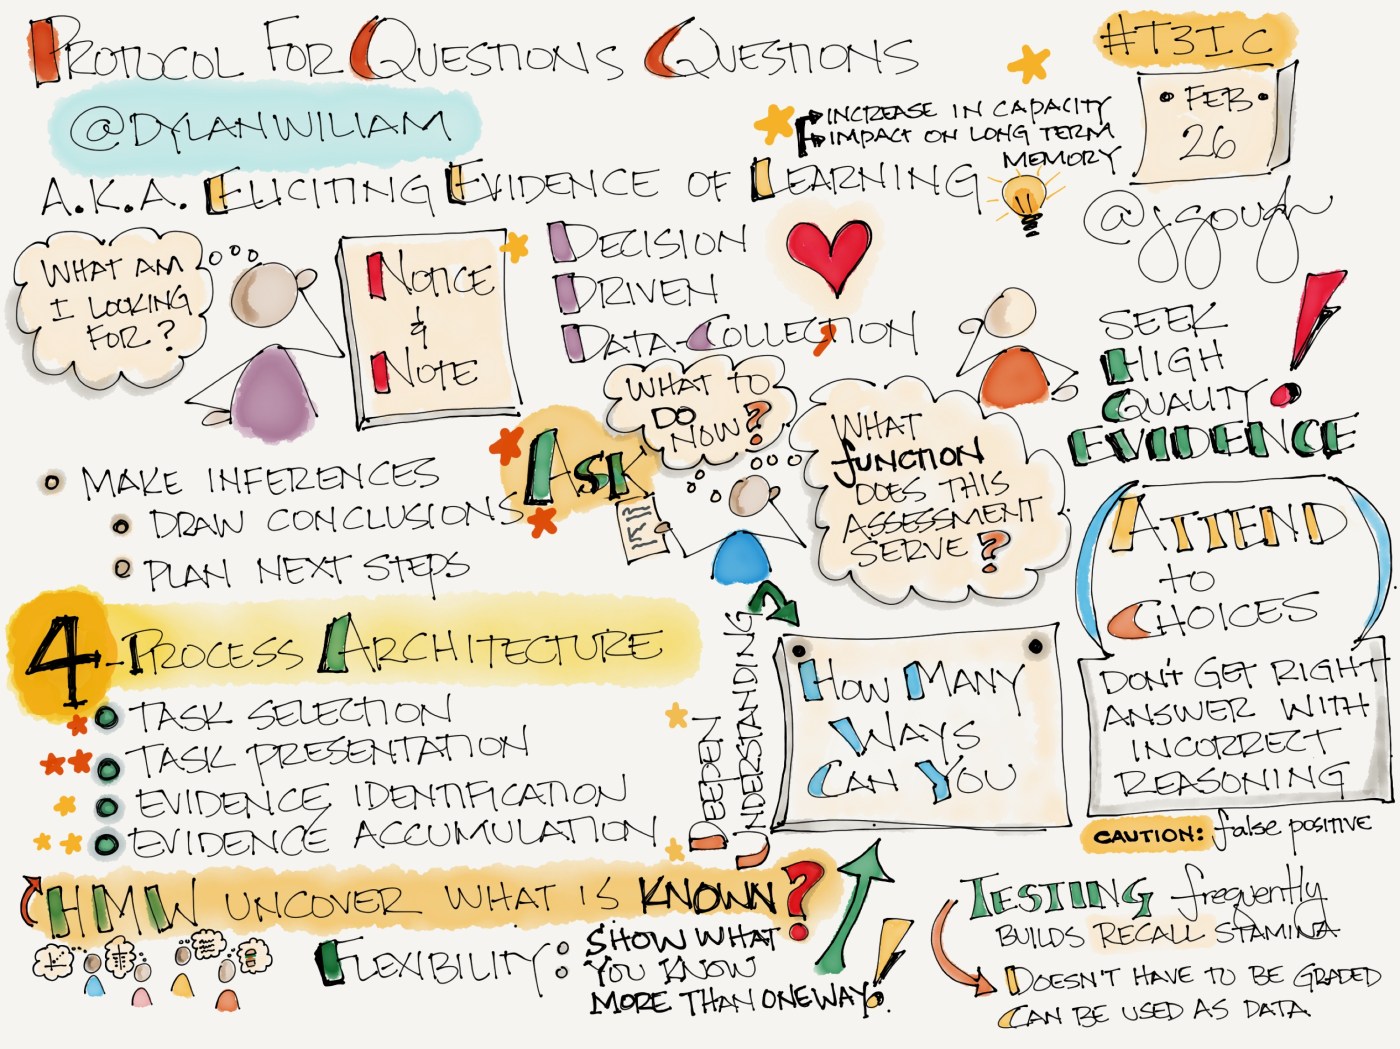 PROTOCOL FOR QUESTIONS QUESTIONS
#T3IC
@DYLANWILIAM
FEB
26
INCREASE IN CAPACITY
IMPACT ON LONG TERM
MEMORY
A.K.A. ELICITING EVIDENCE OF LEARNING
@jgough
WHAT AM
I LOOKING
FOR?
NOTICE
&
NOTE
DECISION
DRIVEN
DATA-COLLECTION
SEEK
HIGH
QUALITY
EVIDENCE
WHAT TO
DO
NOW?
ASK
WHAT
FUNCTION
DOES THIS
ASSESSMENT
SERVE?
MAKE INFERENCES
DRAW CONCLUSIONS
PLAN NEXT STEPS
ATTEND
TO
CHOICES
DON'T GET RIGHT
ANSWER WITH
INCORRECT
REASONING
CAUTION: false positive
4-PROCESS ARCHITECTURE
TASK SELECTION
TASK PRESENTATION
EVIDENCE IDENTIFICATION
EVIDENCE ACCUMULATION
DEEPEN
UNDERSTANDING
HOW MANY
WAYS
CAN YOU
HMW UNCOVER WHAT IS KNOWN?
FLEXIBILITY: SHOW WHAT
YOU KNOW
MORE THAN ONE WAY!
TESTING frequently
BUILDS RECALL STAMINA
DOESN'T HAVE TO BE GRADED
CAN BE USED AS DATA